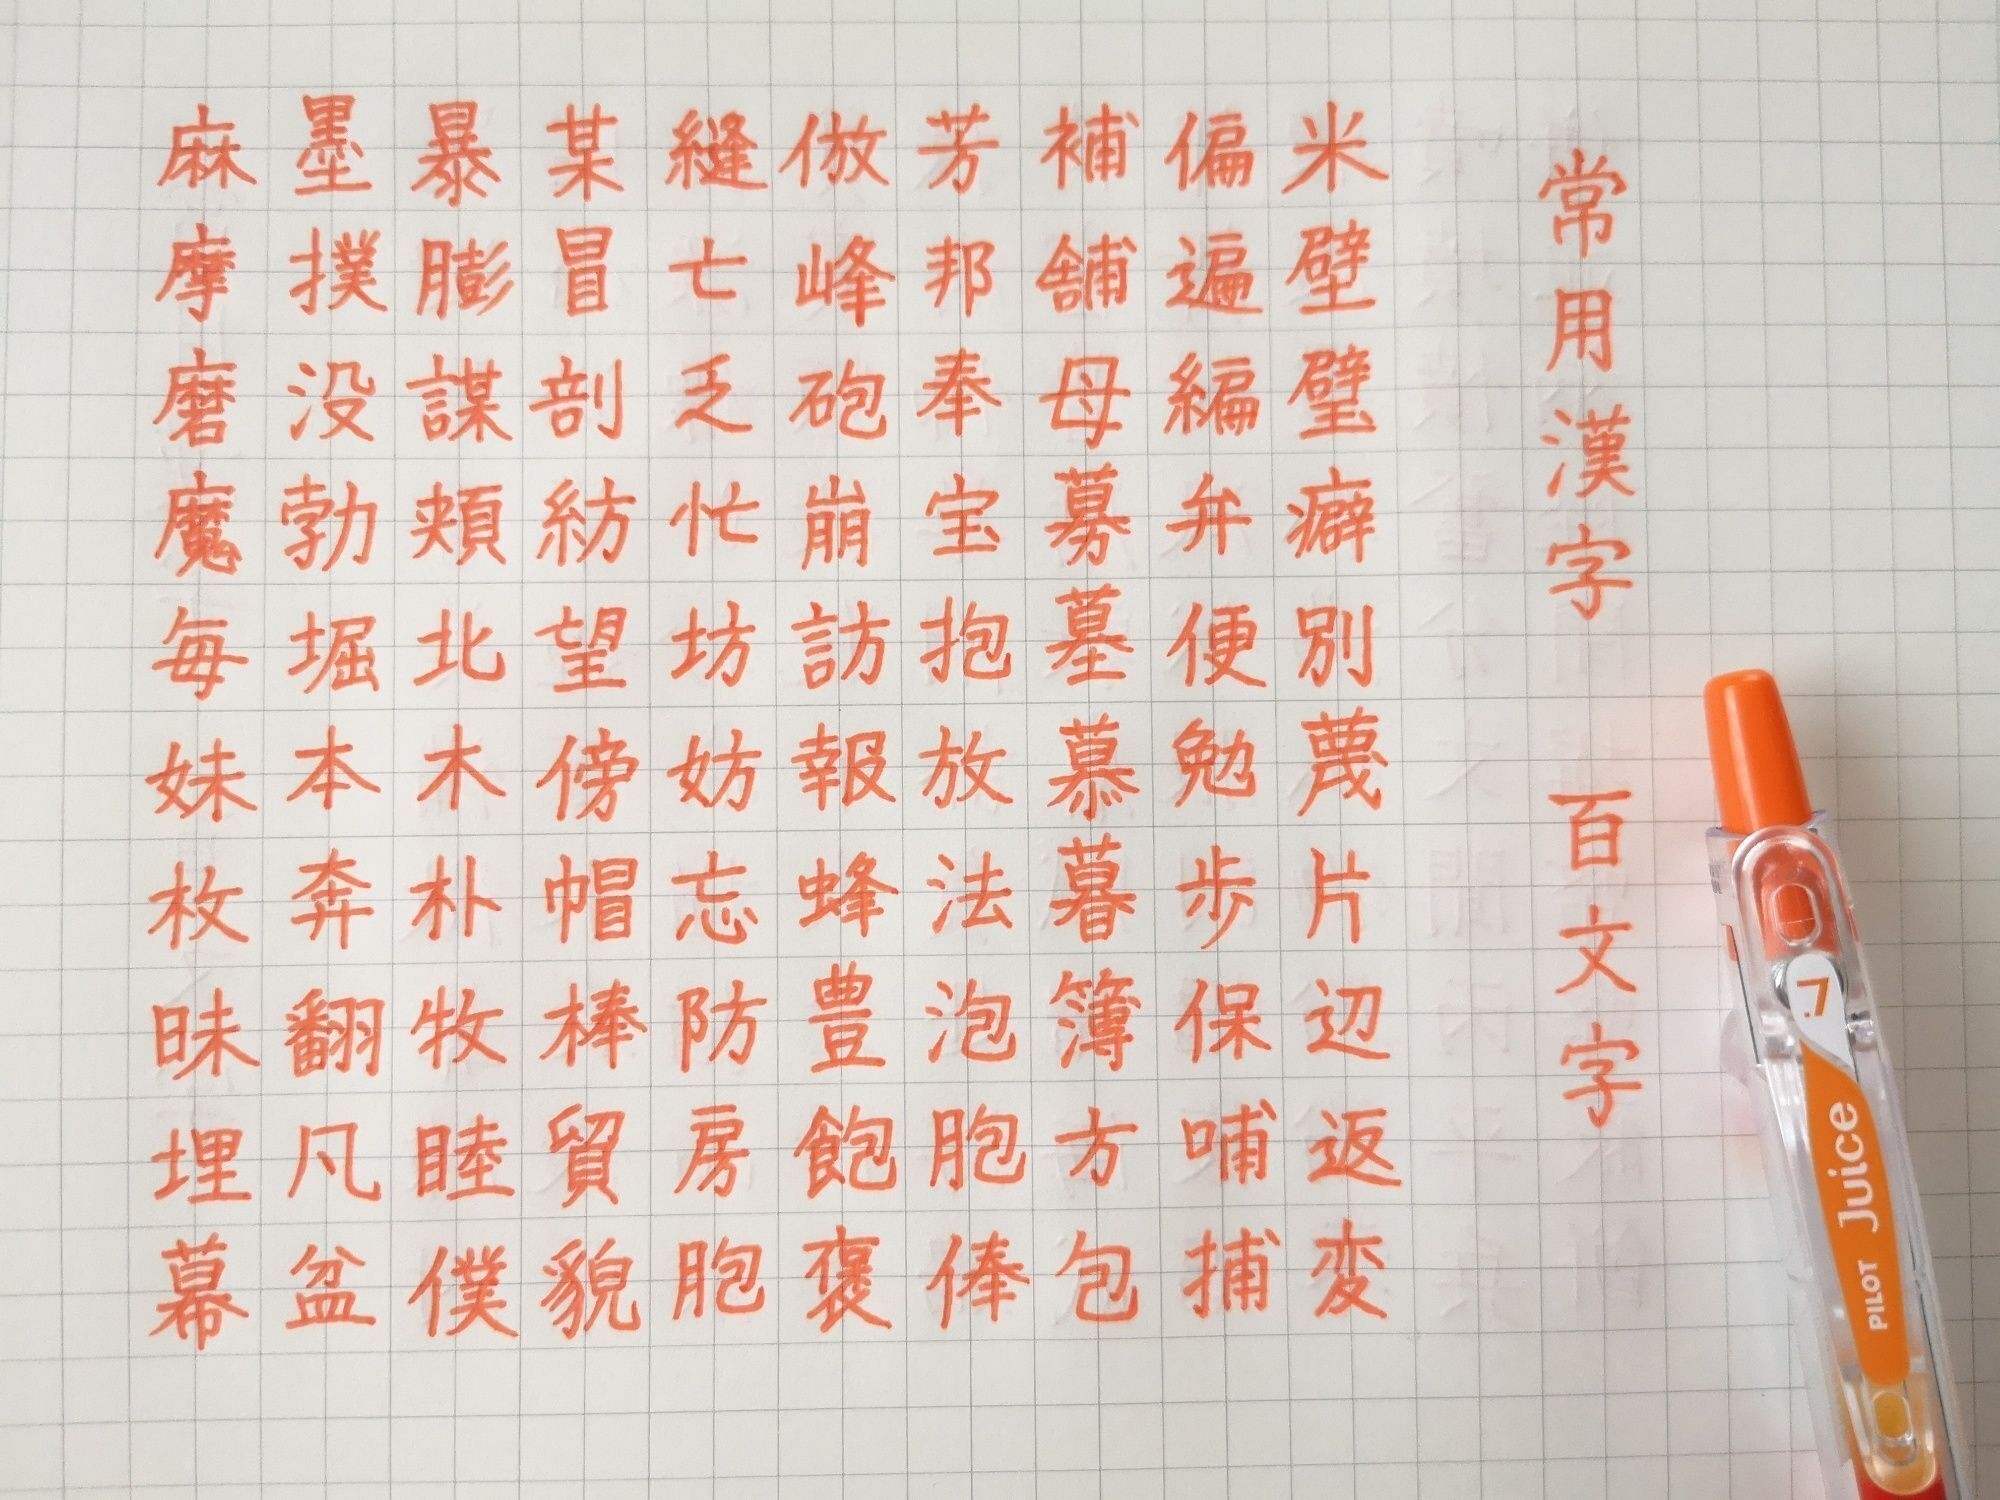 常用漢字 百文字
米壁璧癖別蔑片辺返変
偏遍編弁便勉歩保哺捕
補舗母募墓慕暮簿方包
芳邦奉宝抱放法泡胞俸
倣峰砲崩訪報蜂豊飽褒
縫亡乏忙坊妨忘防房胞
某冒剖紡望傍帽棒貿貌
暴膨謀頬北木朴牧睦僕
墨撲没勃堀本奔翻凡盆
麻摩磨魔毎妹枚昧埋幕
.7
PILOT Juice